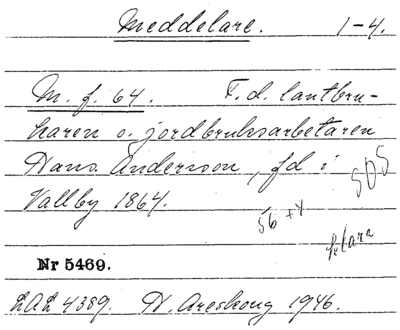 Meddelare. 1-4.
M. f. 64. F. d. lantbru-
karen o. jordbruksarbetaren
Hans Andersson, fd i
Vallby 1864.
505
56 + 4
klara
Nr 5469.
LAL 4389. H. Areskoug 1946.